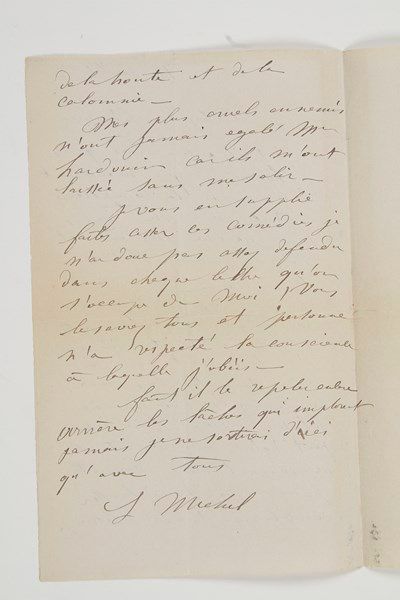 de la honte et de la
calomnie —
Mes plus cruels ennemis
n'ont jamais egalé Mr
hardouin car ils m'ont
laissée sans me salir —
je vous en supplie
faites cesser ces comédies je
n'ai donc pas assez defendu
dans chaque lettre qu'on
s'occupe de moi Vous
le savez tous et personne
n'a respecté la conscience
à laquelle j'obéis —
faut il le repeter encore
arrière les lâches qui implorent
jamais je ne sortirai d'ici
qu'avec tous
L Michel